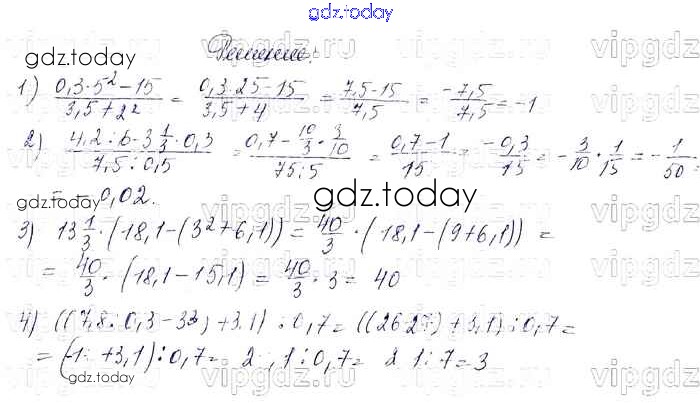 gdz.today
Решение:
gdz.today
1) (0,3·5²-15)/(3,5+2²) = (0,3·25-15)/(3,5+4) = (7,5-15)/7,5 = (-7,5)/7,5 = -1
2) (4,2:6-3 1/3·0,3)/(7,5:0,5) = (0,7-10/3·3/10)/(75:5) = (0,7-1)/15 = (-0,3)/15 = -3/10·1/15 = -1/50 =
= -0,02.
gdz.today
3) 13 1/3·(18,1-(3²+6,1)) = 40/3·(18,1-(9+6,1)) =
= 40/3·(18,1-15,1) = 40/3·3 = 40
4) ((7,8:0,3-3³)+3,1):0,7 = ((26-27)+3,1):0,7 =
= (-1+3,1):0,7 = 2,1:0,7 = 21:7 = 3
gdz.today
vipgdz.ru